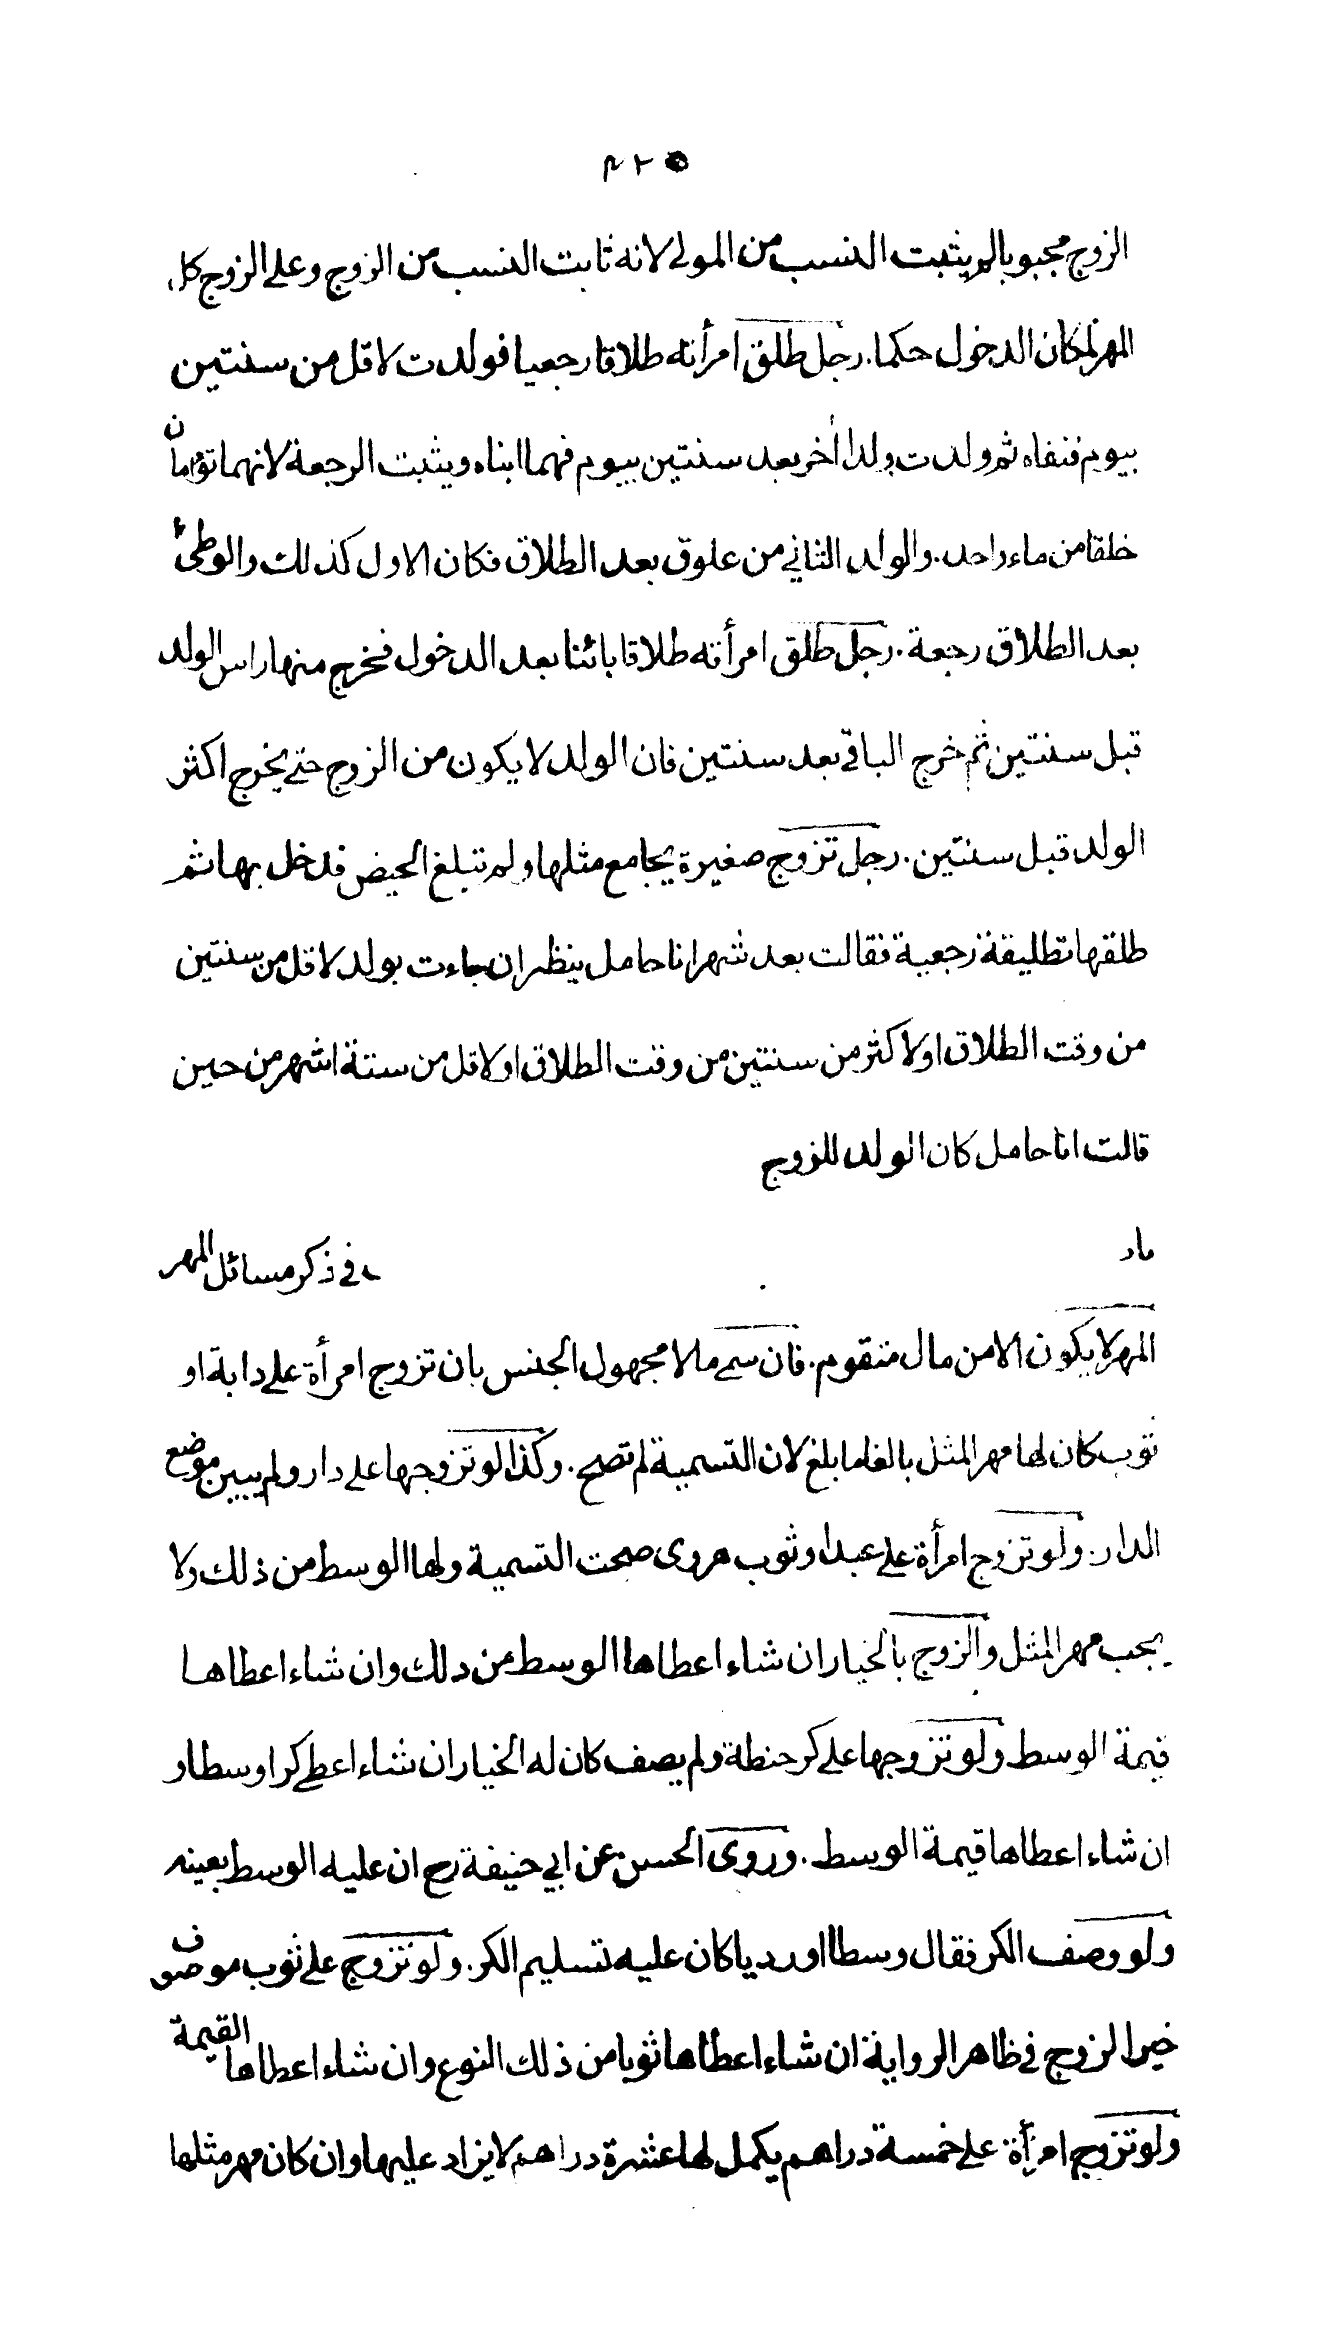 ٤٢٥
الزوج مجبوبا لم يثبت النسب من المولى لانه ثابت النسب من الزوج وعلى الزوج كل
المهر لمكان الدخول حكما. رجل طلق امرأته طلاقا رجعيا فولدت لاقل من سنتين
بيوم فنفاه ثم ولدت ولدا أخر بعد سنتين بيوم فهما ابناه ويثبت الرجعة لانهما توأمان
خلقا من ماء واحد. والولد الثاني من علوق بعد الطلاق فكان الاول كذلك والوطئ
بعد الطلاق رجعة. رجل طلق امرأته طلاقا بائنا بعد الدخول فخرج منها راس الولد
قبل سنتين ثم خرج الباقي بعد سنتين فان الولد لا يكون من الزوج حتى يخرج اكثر
الولد قبل سنتين. رجل تزوج صغيرة يجامع مثلها ولم تبلغ الحيض فدخل بها ثم
طلقها تطليقة رجعية فقالت بعد شهر انا حامل ينظر ان جاءت بولد لاقل من سنتين
من وقت الطلاق او لاكثر من سنتين من وقت الطلاق او لاقل من ستة اشهر من حين
قالت انا حامل كان الولد للزوج
في ذكر مسائل المهر
المهر لا يكون الا من مال متقوم. فان سمى مالا مجهول الجنس بان تزوج امرأة على دابة او
ثوب كان لها مهر المثل بالغا ما بلغ لان التسمية لم تصح. وكذا لو تزوجها على دار ولم يبين موضع
الدار. ولو تزوج امرأة على عبد او ثوب هروى صحت التسمية ولها الوسط من ذلك ولا
يجب مهر المثل والزوج بالخيار ان شاء اعطاها الوسط من ذلك وان شاء اعطاها
قيمة الوسط ولو تزوجها على كر حنطة ولم يصف كان له الخيار ان شاء اعطى كرا وسطا و
ان شاء اعطاها قيمة الوسط. وروى الحسن عن ابي حنيفة رح ان عليه الوسط بعينه
ولو وصف الكر فقال وسطا او رديا كان عليه تسليم الكر. ولو تزوج على ثوب موصوف
خير الزوج في ظاهر الرواية ان شاء اعطاها ثوبا من ذلك النوع وان شاء اعطاها القيمة
ولو تزوج امرأة على خمسة دراهم يكمل لها عشرة دراهم لا يزاد عليها وان كان مهر مثلها